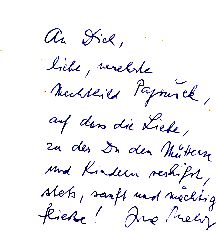 An Dich,
liebe, verehrte
Mechthild
auf dass die Liebe,
zu der Du den Müttern
und Kindern verhilfst,
stets, sanft und mächtig
fließe!